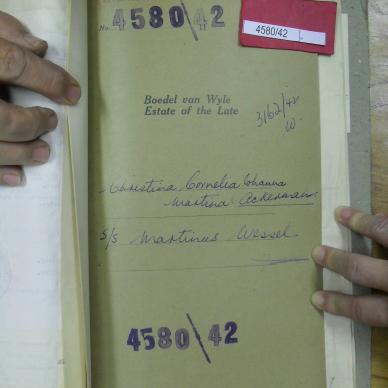 No. 4580\42
4580/42
Boedel van Wyle
Estate of the Late
3/62/42
W.
Christina Cornelia Johanna
Martina Ackermann
s/s Martinus Wessel
4580\42